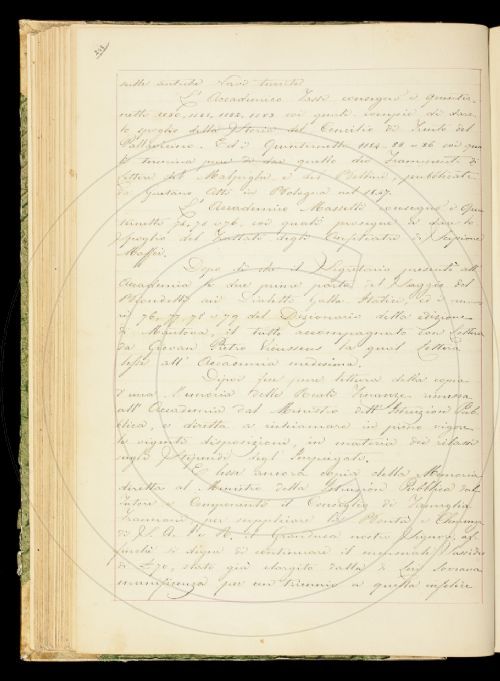 sulle antiche Torri
L'Accademico Tassi consegna i Quinter-
netti 1120, 1121, 1122, 1123 coi quali compie di dare
lo spoglio della Storia del Concilio di Trento del
Pallavicino. Ed i Quinternetti 1124 - 25 - 26 coi qua
li termina pure di dar quello dei Frammenti di
Lettere del Malpighi e del Bellini, pubblicate
da Gaetano Atti in Bologna nel 1847.
L'Accademico Masselli consegna i Quin
ternetti 74, 75 e 76, coi quali prosegue a dare lo
Spoglio del Trattato degli Anfiteatri di Scipione
Maffei.
Dopo di che il Segretario presentò all'
Accademia le due prime parti del Saggio del
Biondelli sui Dialetti Gallo Italici, ed i nume
ri 76, 77, 78 e 79 del Dizionario della edizione
di Mantova, il tutto accompagnato con Lettera
da Giovan Pietro Vieusseux la qual Lettera
lesse all'Accademia medesima.
Dipoi fece pure lettura della copia
d'una Memoria delle Reali Finanze rimessa
all'Accademia dal Ministro dell'Istruzione Pub
blica, e diretta a richiamare in pieno vigore
le vigenti disposizioni, in materia dei rilasci
sugli Stipendi degl'Impiegati.
E lesse ancora copia della Memoria
diretta al Ministro della Istruzione Pubblica dal
Tutore e Componenti il Consiglio di Famiglia
per supplicare la Bontà e Clemenza
di S. A. I. e R. il Granduca nostro Signore, af
finchè si degni di continuare il mensuale sussidio
di £ 70, stato già elargito dalla di Lui Sovrana
munificenza per un triennio a quella infelice